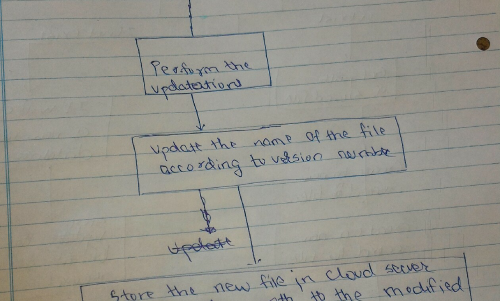 Perform the
updatations
update the name of the file
according to version number
Updat
Store the new file in cloud server
path to the modified